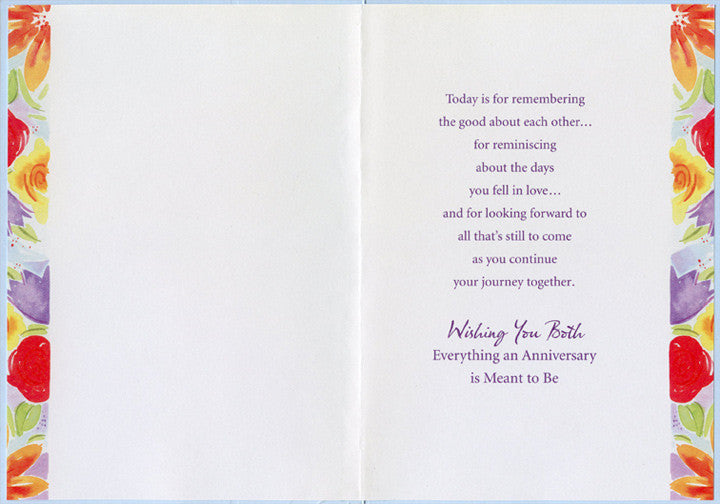 Today is for remembering
the good about each other…
for reminiscing
about the days
you fell in love…
and for looking forward to
all that's still to come
as you continue
your journey together.
Wishing You Both
Everything an Anniversary
is Meant to Be